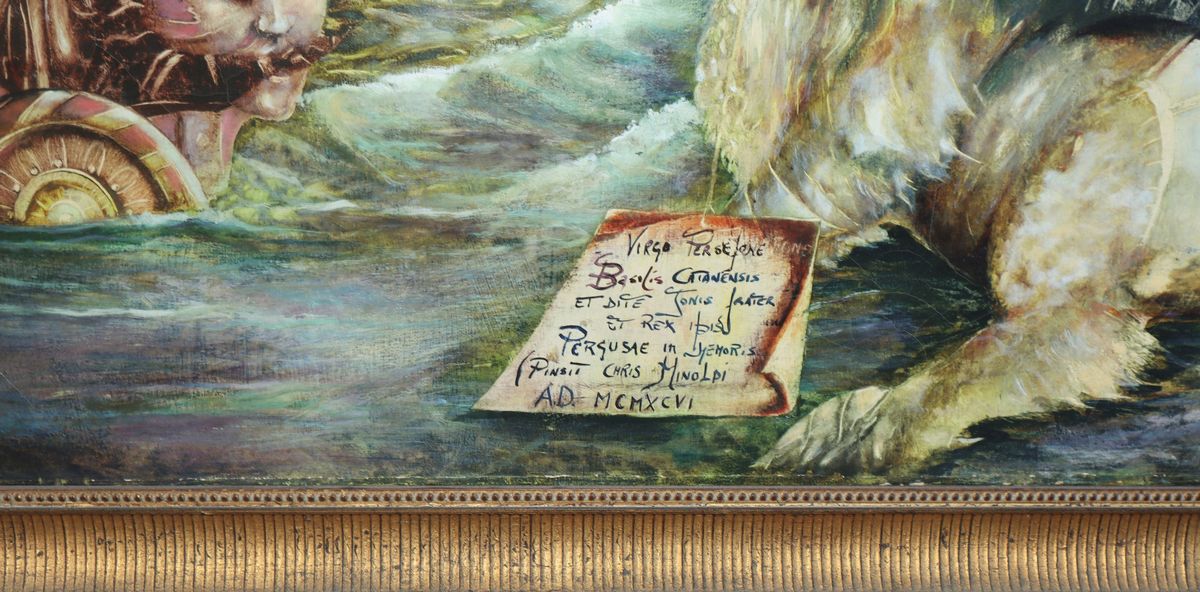 Virgo Persefone
Basilis Catanensis
et dite Jonis frater
et rex ibis
Pergusae in Memoris
Pinsit Chris Minoldi
AD MCMXCVI